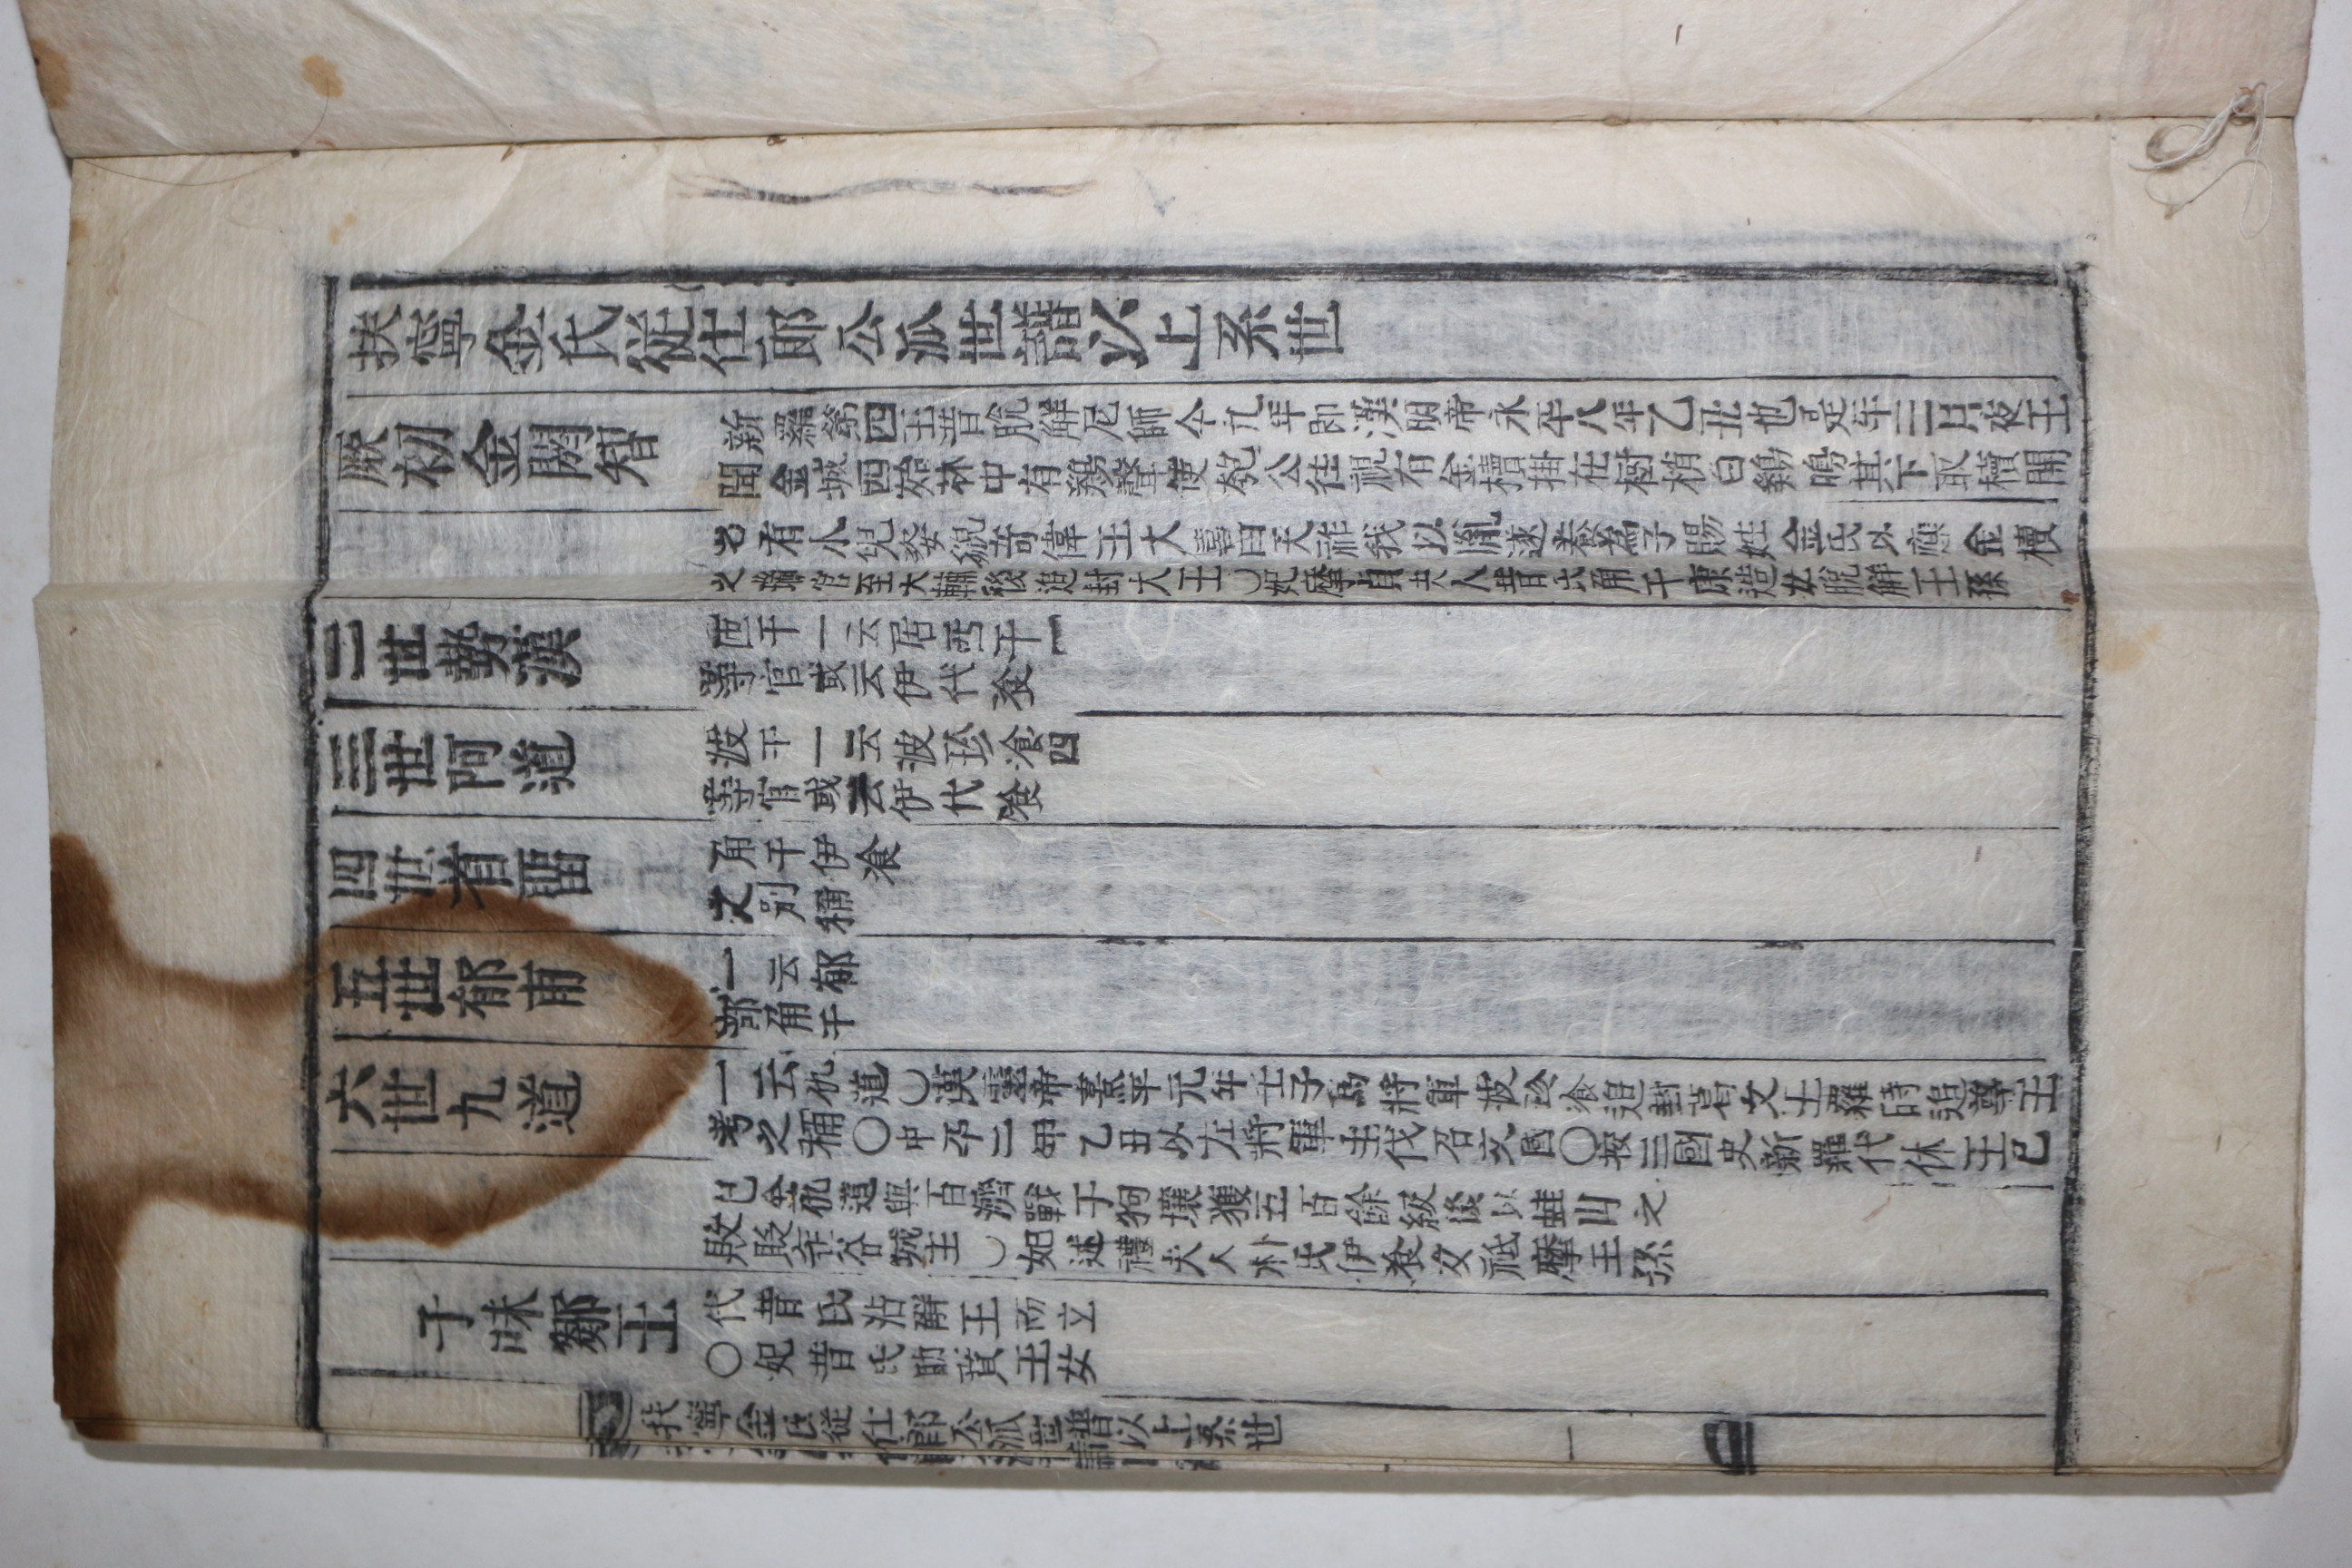 扶寧金氏從仕郎公派世譜以上系世
厥初金閼智
新羅第四王昔脫解尼師今九年即漢明帝永平八年乙丑也是年三月夜王
聞金城西始林中有鷄聲使匏公往視有金櫝掛在樹梢白鷄鳴其下取櫝開
之有小兒姿貌奇偉王大喜曰天祚我以胤遂養為子賜姓金氏以應金櫝
之瑞官至大輔後追封大王○妃摩貞夫人昔氏角干康造女脫解王孫
二世勢漢
匝干一云居西干一
等官或云伊代飡
三世阿道
波干一云波珍飡四
等官或云伊代飡
四世首畱
角干伊飡
之別稱
五世郁甫
一云郁
部角干
六世九道
一云仇道○漢靈帝熹平元年壬子爲將軍波珍飡追封葛文王羅時追尊王
考之稱○中平二年乙丑以左將軍主伐召文國○按三國史新羅代休王己
巳金仇道與百濟戰于狗壤獲五百餘級後以蛙山之
敗貶缶谷城主○妃述禮夫人朴氏伊飡女祗摩王孫
子味鄒王
代昔氏沾解王而立
○妃昔氏助賁王女
扶寧金氏從仕郎公派世譜以上系世
一